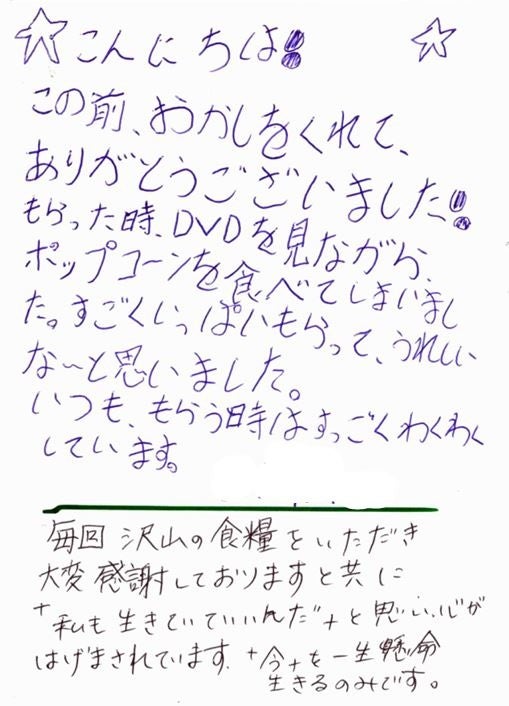 こんにちは!!
この前、おかしをくれて、
ありがとうございました!!
もらった時、DVDを見ながら、
ポップコーンを食べてしまいまし
た。すごくいっぱいもらって、うれしい
な〜と思いました。
いつも、もらう時はすっごくわくわく
しています。
毎回沢山の食糧をいただき
大変感謝しておりますと共に
"私も生きていていいんだ"と思い、心が
はげまされています。今を一生懸命
生きるのみです。